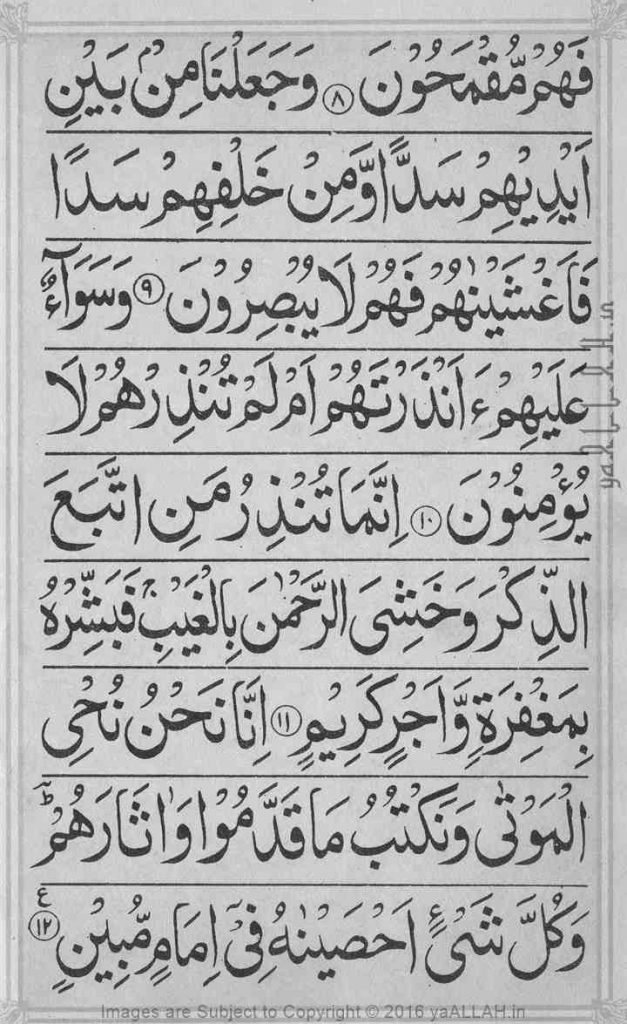 فَهُمْ مُّقْمَحُوْنَ ۝۸ وَجَعَلْنَا مِنْۢ بَيْنِ
اَيْدِيْهِمْ سَدًّا وَّمِنْ خَلْفِهِمْ سَدًّا
فَاَغْشَيْنٰهُمْ فَهُمْ لَا يُبْصِرُوْنَ ۝۹ وَسَوَآءٌ
عَلَيْهِمْ ءَاَنْذَرْتَهُمْ اَمْ لَمْ تُنْذِرْهُمْ لَا
يُؤْمِنُوْنَ ۝۱۰ اِنَّمَا تُنْذِرُ مَنِ اتَّبَعَ
الذِّكْرَ وَخَشِىَ الرَّحْمٰنَ بِالْغَيْبِۚ فَبَشِّرْهُ
بِمَغْفِرَةٍ وَّاَجْرٍ كَرِيْمٍ ۝۱۱ اِنَّا نَحْنُ نُحْىِ
الْمَوْتٰى وَنَكْتُبُ مَا قَدَّمُوْا وَاٰثَارَهُمْؕ
وَكُلَّ شَىْءٍ اَحْصَيْنٰهُ فِىْٓ اِمَامٍ مُّبِيْنٍ ۝۱۲ ع
yaALLAH.in
Images are Subject to Copyright © 2016 yaALLAH.in